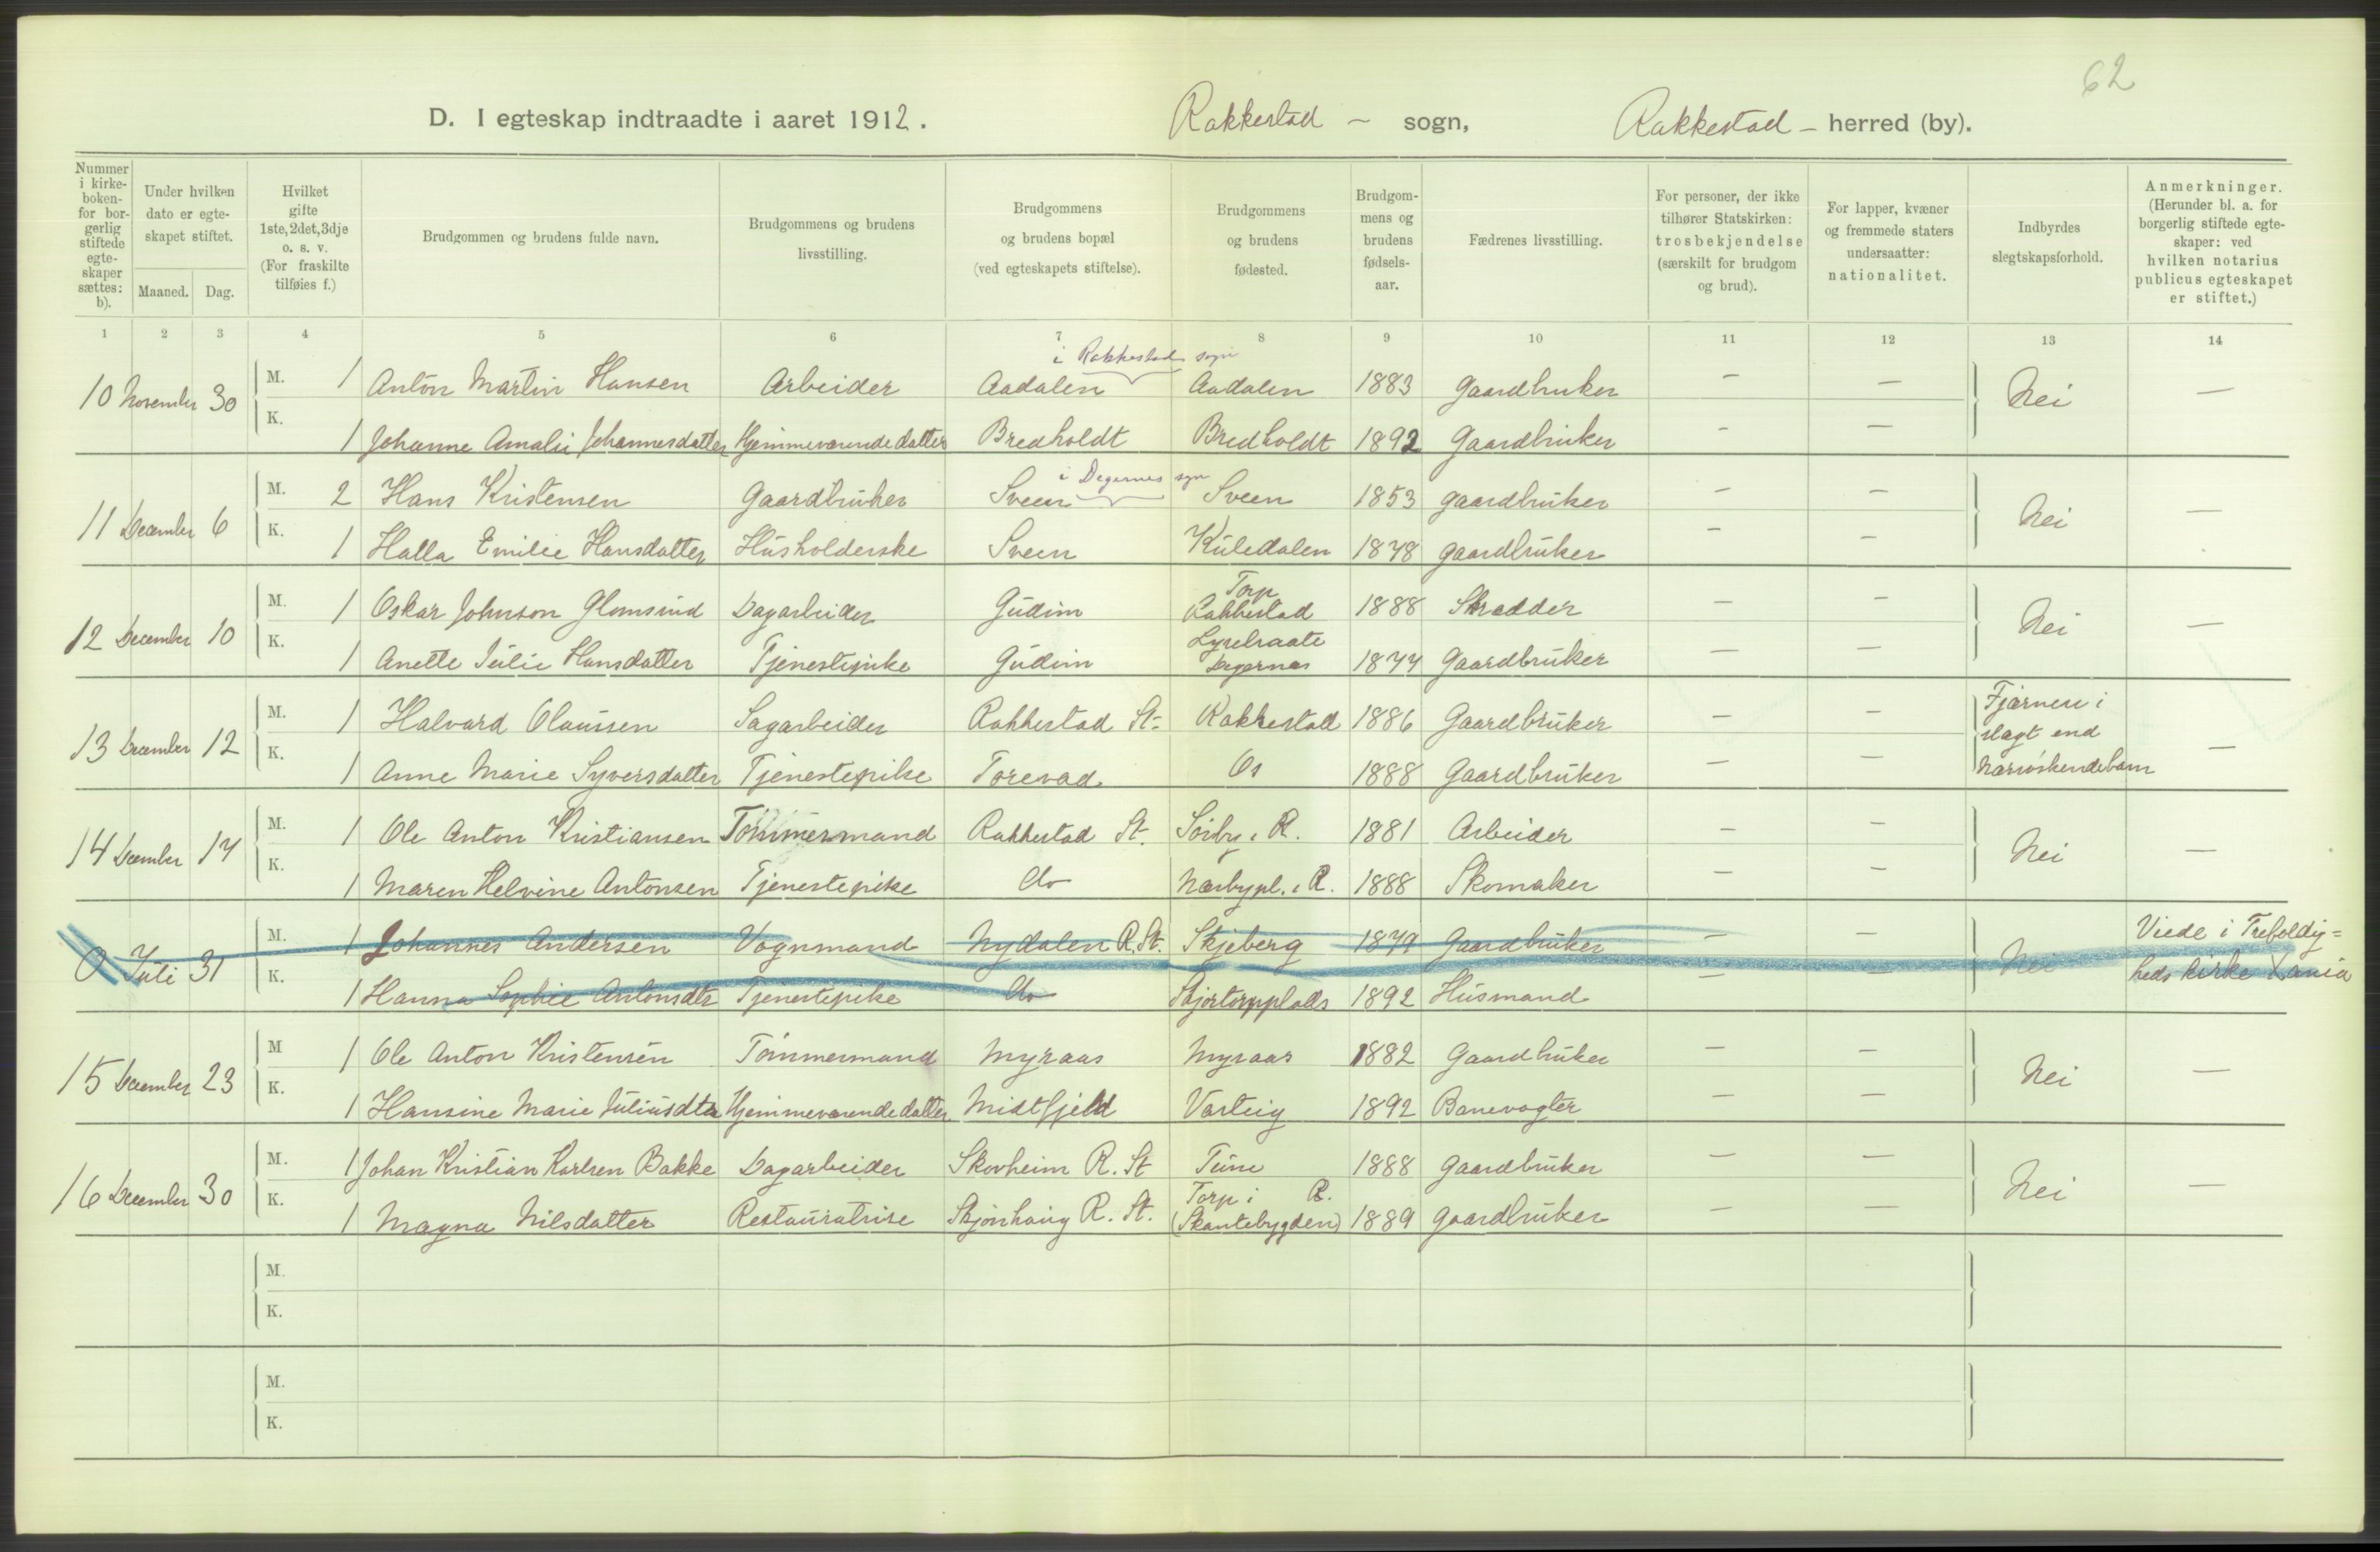 62
D. I egteskap indtraadte i aaret 1912. Rakkestad - sogn, Rakkestad - herred (by).
Nummer i kirkeboken for borgerlig stiftede egteskaper sættes: b).
Under hvilken dato er egteskapet stiftet.
Maaned. Dag.
Hvilket gifte 1ste, 2det, 3dje o. s. v. (For fraskilte tilføies f.)
Brudgommen og brudens fulde navn.
Brudgommens og brudens livsstilling.
Brudgommens og brudens bopæl (ved egteskapets stiftelse).
Brudgommens og brudens fødested.
Brudgommens og brudens fødselsaar.
Fædrenes livsstilling.
For personer, der ikke tilhører Statskirken: trosbekjendelse (særskilt for brudgom og brud).
For lapper, kvæner og fremmede staters undersaatter: nationalitet.
Indbyrdes slegtskapsforhold.
Anmerkninger. (Herunder bl. a. for borgerlig stiftede egteskaper: ved hvilken notarius publicus egteskapet er stiftet.)
1 2 3 4 5 6 7 8 9 10 11 12 13 14
i Rakkestad sogn
10 November 30 M. 1 Anton Martin Hansen Arbeider Aadalen Aadalen 1883 Gaardbruker — — Nei —
K. 1 Johanne Amalie Johannesdatter Hjemmeværende datter Bredholdt Bredholdt 1892 Gaardbruker - —
i Degernes sogn
11 December 6 M. 2 Hans Kristensen Gaardbruker Sveen Sveen 1853 gaardbruker — — Nei —
K. 1 Halla Emilie Hansdatter Husholderske Sveen Kuledalen 1878 gaardbruker — —
Torp
12 December 10 M. 1 Oskar Johnson Glomsrud Dagarbeider Gudim Rakkestad 1888 Skrædder — — Nei —
K. 1 Anette Julie Hansdatter Tjenestepike Gudim Degernes 1877 Gaardbruker — —
13 December 12 M. 1 Halvard Olaussen Sagarbeider Rakkestad St. Rakkestad 1886 Gaardbruker — — Fjærnere i
slagt end
K. 1 Anne Marie Syversdatter Tjenestepike Torevad Os 1888 Gaardbruker — — Næssøskendebarn —
14 December 17 M. 1 Ole Anton Kristiansen Tømmermand Rakkestad St. Sørby i R. 1881 Arbeider — — Nei —
K. 1 Maren Helvine Antonsen Tjenestepike do Næsbypl. i R. 1888 Skomaker — —
0 Juli 31 M. 1 Johannes Andersen Vognmand Nydalen R. St. Skjeberg 1879 Gaardbruker — — Nei Viede i Trefoldig=
K. 1 Hanna Sophie Antonsdtr Tjenestepike do Skjørtorpplads 1892 Husmand — — heds kirke Xania
15 December 23 M 1 Ole Anton Kristensen Tømmermand Myraas Myraas 1882 Gaardbruker — — Nei —
K. 1 Hansine Marie Juliusdtr Hjemmeværende datter Midtfjeld Varteig 1892 Banevogter — —
16 December 30 M. 1 Johan Kristian Karlsen Bakke Dagarbeider Skovheim R. St Tune 1888 Gaardbruker — — Nei —
Torp i R.
K. 1 Magna Nilsdatter Restauratrise Skjønhaug R. St. (Skantebygden) 1889 Gaardbruker — —
M.
K.
M.
K.